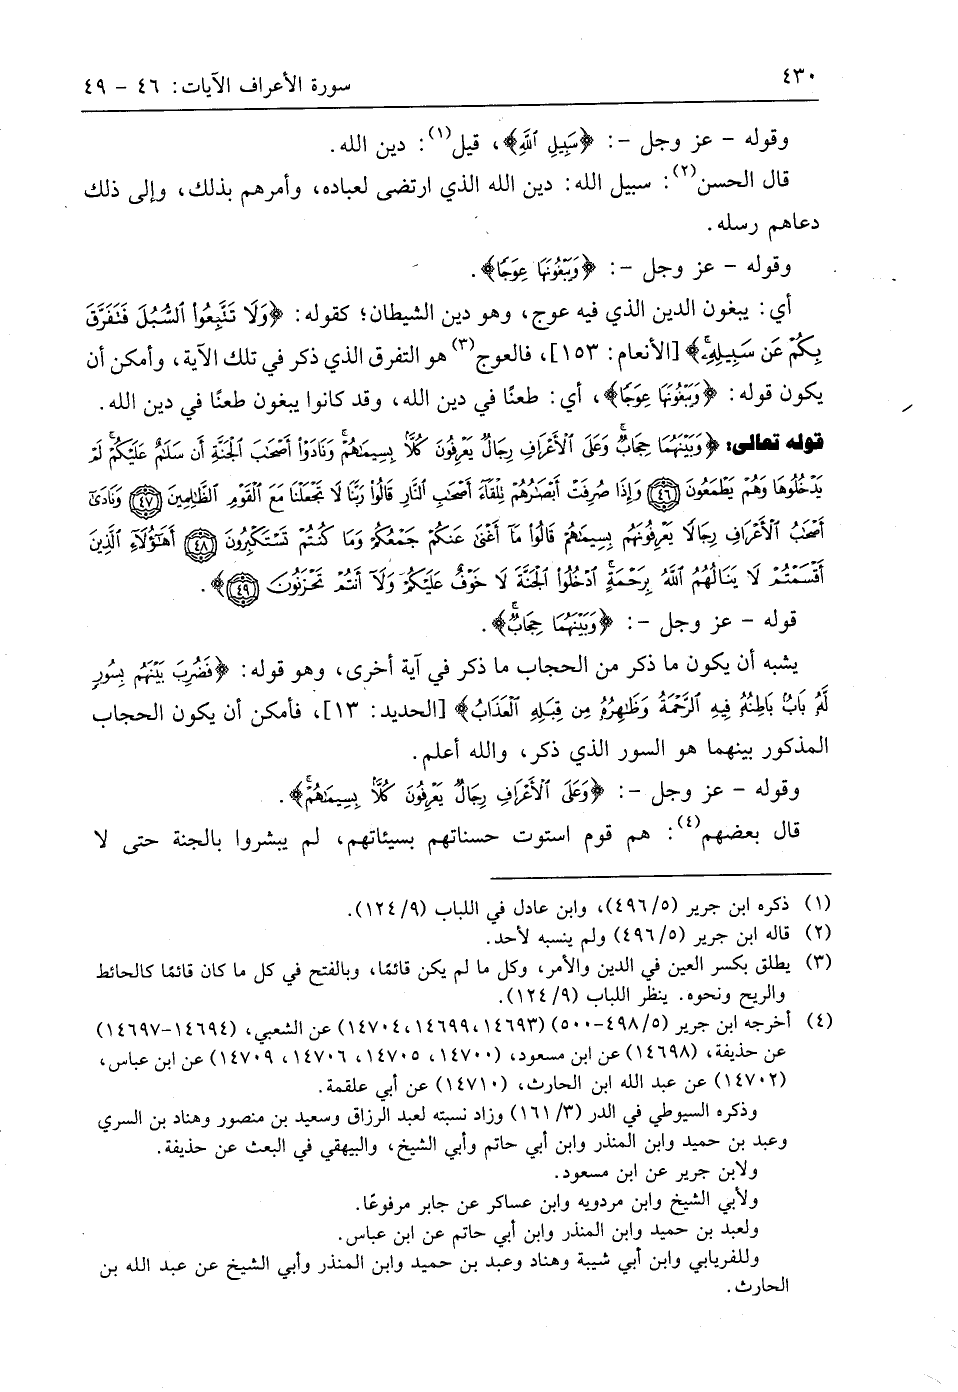 ٤٣٠
سورة الأعراف الآيات: ٤٦ - ٤٩
وقوله - عز وجل -: ﴿سَبِيلِ ٱللَّهِ﴾، قيل(١): دين الله.
قال الحسن(٢): سبيل الله: دين الله الذي ارتضى لعباده، وأمرهم بذلك، وإلى ذلك
دعاهم رسله.
وقوله - عز وجل -: ﴿وَيَبْغُونَهَا عِوَجًا﴾.
أي: يبغون الدين الذي فيه عوج، وهو دين الشيطان؛ كقوله: ﴿وَلَا تَتَّبِعُواْ ٱلسُّبُلَ فَتَفَرَّقَ
بِكُمْ عَن سَبِيلِهِۦۚ﴾ [الأنعام: ١٥٣]، فالعوج(٣) هو التفرق الذي ذكر في تلك الآية، وأمكن أن
يكون قوله: ﴿وَيَبْغُونَهَا عِوَجًا﴾، أي: طعنًا في دين الله، وقد كانوا يبغون طعنًا في دين الله.
قوله تعالى: ﴿وَبَيْنَهُمَا حِجَابٌۚ وَعَلَى ٱلْأَعْرَافِ رِجَالٌ يَعْرِفُونَ كُلًّۢا بِسِيمَىٰهُمْۚ وَنَادَوْاْ أَصْحَٰبَ ٱلْجَنَّةِ أَن سَلَٰمٌ عَلَيْكُمْۚ لَمْ
يَدْخُلُوهَا وَهُمْ يَطْمَعُونَ ٤٦ وَإِذَا صُرِفَتْ أَبْصَٰرُهُمْ تِلْقَآءَ أَصْحَٰبِ ٱلنَّارِ قَالُواْ رَبَّنَا لَا تَجْعَلْنَا مَعَ ٱلْقَوْمِ ٱلظَّٰلِمِينَ ٤٧ وَنَادَىٰٓ
أَصْحَٰبُ ٱلْأَعْرَافِ رِجَالًا يَعْرِفُونَهُم بِسِيمَىٰهُمْ قَالُواْ مَآ أَغْنَىٰ عَنكُمْ جَمْعُكُمْ وَمَا كُنتُمْ تَسْتَكْبِرُونَ ٤٨ أَهَٰٓؤُلَآءِ ٱلَّذِينَ
أَقْسَمْتُمْ لَا يَنَالُهُمُ ٱللَّهُ بِرَحْمَةٍۚ ٱدْخُلُواْ ٱلْجَنَّةَ لَا خَوْفٌ عَلَيْكُمْ وَلَآ أَنتُمْ تَحْزَنُونَ ٤٩﴾.
قوله - عز وجل -: ﴿وَبَيْنَهُمَا حِجَابٌۚ﴾.
يشبه أن يكون ما ذكر من الحجاب ما ذكر في آية أخرى، وهو قوله: ﴿فَضُرِبَ بَيْنَهُم بِسُورٍ
لَّهُۥ بَابٌۢ بَاطِنُهُۥ فِيهِ ٱلرَّحْمَةُ وَظَٰهِرُهُۥ مِن قِبَلِهِ ٱلْعَذَابُ﴾ [الحديد: ١٣]، فأمكن أن يكون الحجاب
المذكور بينهما هو السور الذي ذكر، والله أعلم.
وقوله - عز وجل -: ﴿وَعَلَى ٱلْأَعْرَافِ رِجَالٌ يَعْرِفُونَ كُلًّۢا بِسِيمَىٰهُمْۚ﴾.
قال بعضهم(٤): هم قوم استوت حسناتهم بسيئاتهم، لم يبشروا بالجنة حتى لا
(١) ذكره ابن جرير (٤٩٦/٥)، وابن عادل في اللباب (١٢٤/٩).
(٢) قاله ابن جرير (٤٩٦/٥) ولم ينسبه لأحد.
(٣) يطلق بكسر العين في الدين والأمر، وكل ما لم يكن قائمًا، وبالفتح في كل ما كان قائمًا كالحائط
والريح ونحوه. ينظر اللباب (١٢٤/٩).
(٤) أخرجه ابن جرير (٤٩٨/٥-٥٠٠) (١٤٦٩٣، ١٤٦٩٩، ١٤٧٠٤) عن الشعبي، (١٤٦٩٤-١٤٦٩٧)
عن حذيفة، (١٤٦٩٨) عن ابن مسعود، (١٤٧٠٠، ١٤٧٠٥، ١٤٧٠٦، ١٤٧٠٩) عن ابن عباس،
(١٤٧٠٢) عن عبد الله ابن الحارث، (١٤٧١٠) عن أبي علقمة.
وذكره السيوطي في الدر (١٦١/٣) وزاد نسبته لعبد الرزاق وسعيد بن منصور وهناد بن السري
وعبد بن حميد وابن المنذر وابن أبي حاتم وأبي الشيخ، والبيهقي في البعث عن حذيفة.
ولابن جرير عن ابن مسعود.
ولأبي الشيخ وابن مردويه وابن عساكر عن جابر مرفوعًا.
ولعبد بن حميد وابن المنذر وابن أبي حاتم عن ابن عباس.
وللفريابي وابن أبي شيبة وهناد وعبد بن حميد وابن المنذر وأبي الشيخ عن عبد الله بن
الحارث.